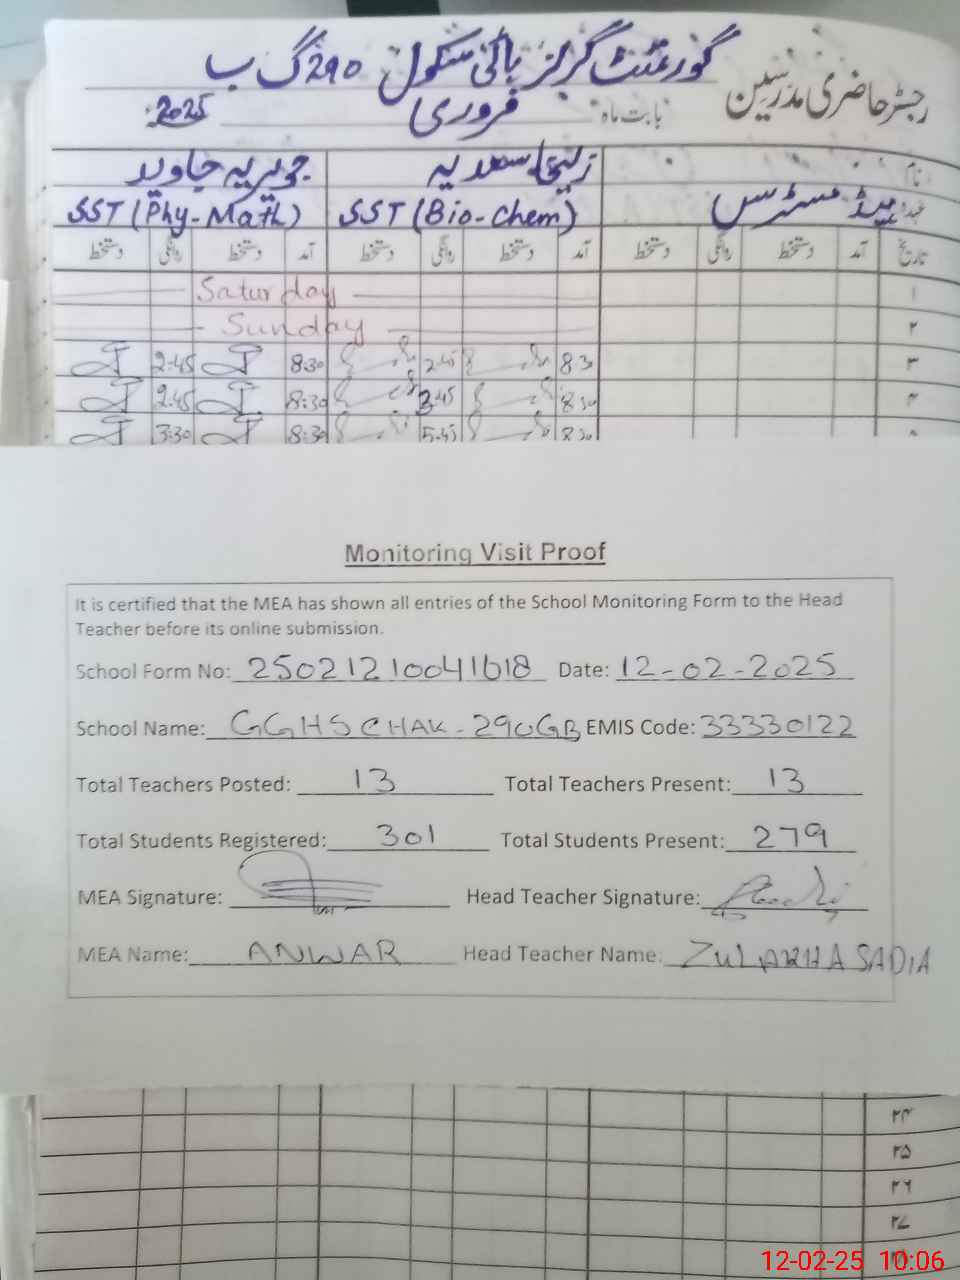 گورنمنٹ گرلز ہائی سکول 290 گ ب
رجسٹر حاضری مدرسین بابت ماہ فروری 2025
نام زلیخا سعدیہ جویریہ جاوید
عہدہ ہیڈ مسٹرس SST (Bio-Chem) SST (Phy-Math)
تاریخ آمد دستخط روانگی دستخط آمد دستخط روانگی دستخط آمد دستخط روانگی دستخط
۱ Saturday
۲ Sunday
۳ 8:30 2:45 8:30 2:45
۴ 8:30 2:45 8:30 2:45
8:30 5:45 8:30 3:30
Monitoring Visit Proof
It is certified that the MEA has shown all entries of the School Monitoring Form to the Head
Teacher before its online submission.
School Form No: 25021210041618 Date: 12-02-2025
School Name: GGHS CHAK-290GB EMIS Code: 33330122
Total Teachers Posted: 13 Total Teachers Present: 13
Total Students Registered: 301 Total Students Present: 279
MEA Signature: Head Teacher Signature:
MEA Name: ANWAR Head Teacher Name: ZULAKHA SADIA
۲۴
۲۵
۲۶
۲۷
12-02-25 10:06